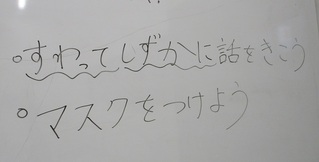 ○すわってしずかに話をきこう
○マスクをつけよう